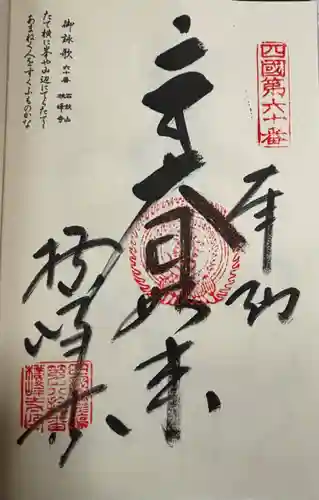 四國第六十番
奉納
大日如来
横峰寺
御詠歌 六十番 石鈇山 横峰寺
たて横に峯や山辺にてらたてゝ
あまねく人をすくふものかな